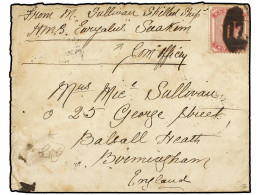 From M. Sullivan Skilled Shipt
H.M.S. Euryalus Suakim
Com. Officer
Mrs Micl Sullivan
25 George Street,
Balsall Heath
Birmingham
England